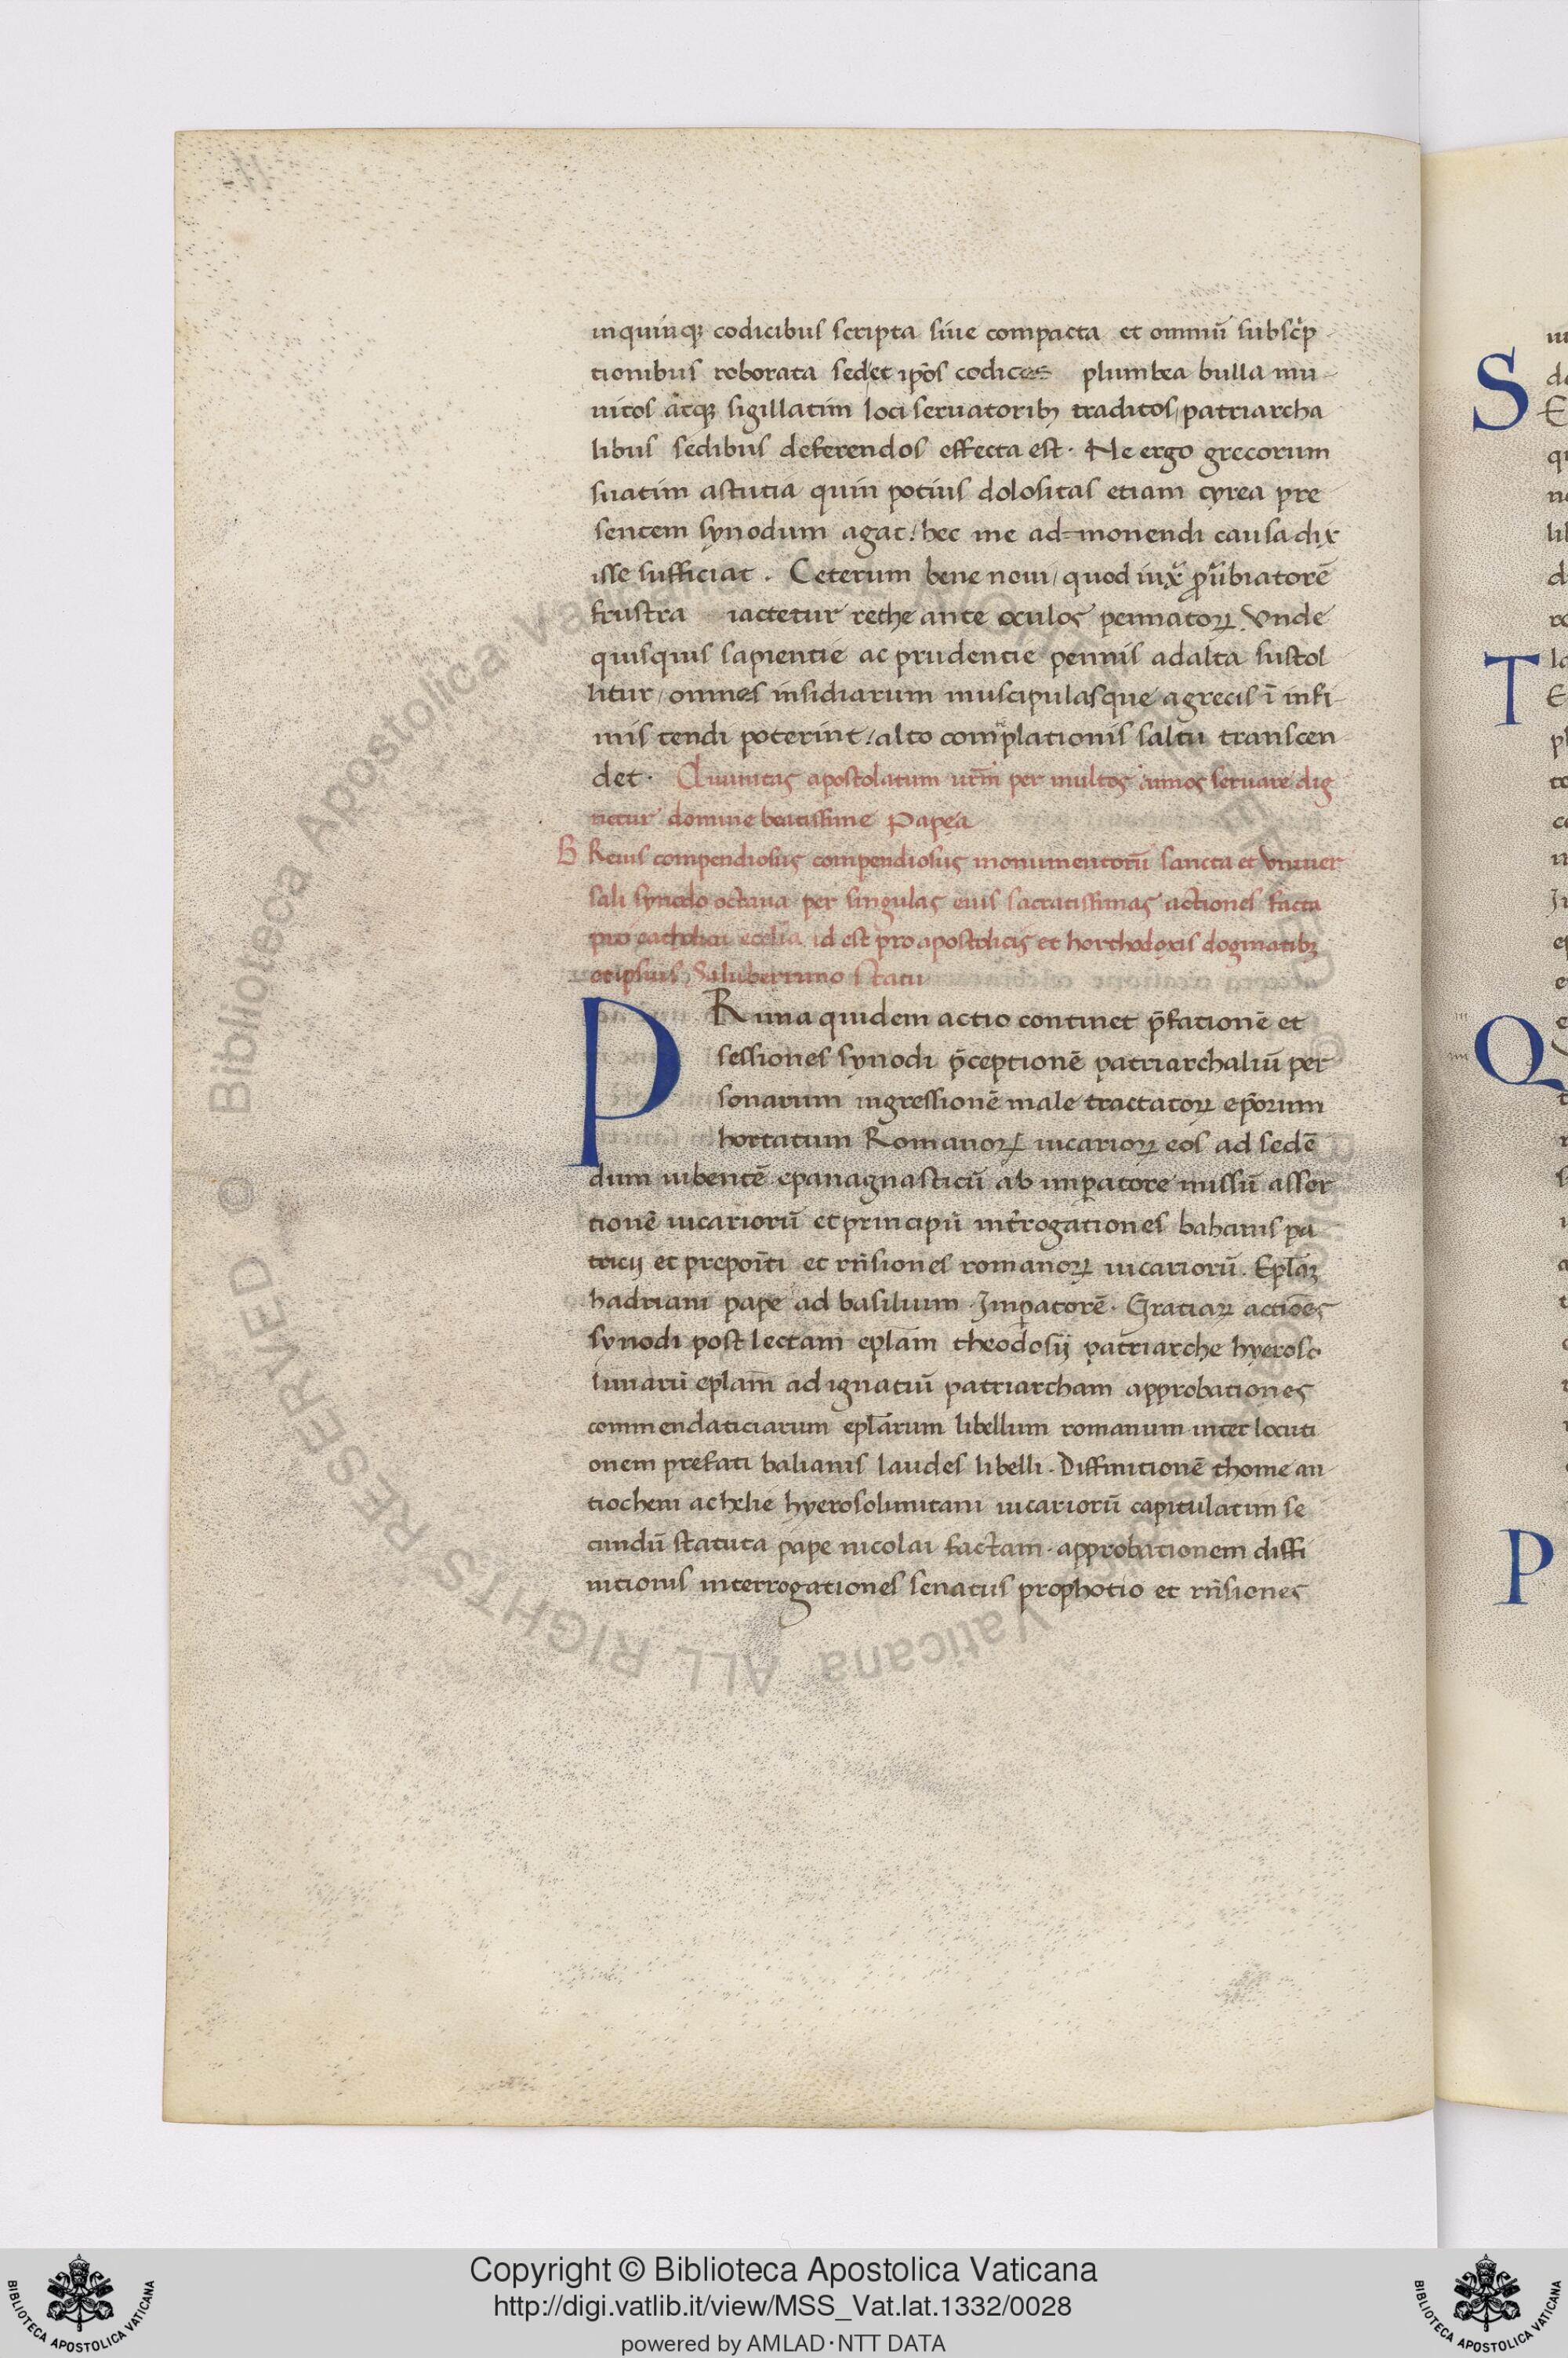 inquinq; codicibus scripta siue compacta et omniũ subsc̃p
tionibus roborata sed et ip̃os codices plumbea bulla mu
nitos atq; sigillatim loci seruatorib; traditos / patriarcha
libus sedibus deferendos effecta est · Ne ergo grecorum
suatim astutia quin potius dolositas etiam cyrea pre
sentem synodum agat: hec me ad=monendi causa dix
isse sufficiat . Ceterum bene noui / quod iux̃
frustra iactetur rethe ante oculos pennatoꝝ. Vnde
quisquis sapientie ac prudentie pennis ad alta sustol
litur / omnes insidiarum muscipulasque a grecis ĩ infi
mis tendi poterint: alto comp̃lationis saltu transcen
det · Diuinitas apostolatum ur̃m per multos annos seruare dig
netur domine beatissime Papea
B Reuis compendiosus compendiosus monumentorũ sancta et vniuer
sali synodo octaua per singulas eius sacratissimas actiones facta
pro catholica eccl̃ia id est pro apostolicis et horthodoxis dogmatib;
et ipsius Saluberrimo statu
P Rima quidem actio continet p̃fationẽ et
sessiones synodi p̃ceptionẽ patriarchaliũ per
sonarum ingressionẽ male tractatoꝝ ep̃orum
hortatum Romanoꝝ uicarioꝝ eos ad sedẽ
dum iubentẽ epanagnasticũ ab imperatore missũ asser
tionẽ uicariorũ et principũ int̃rogationes bahanis pa
tricij et prepoĩti et rñsiones romanoꝝ uicariorũ. Epl̃aꝝ
hadriani pape ad basilium · Imperatorẽ · Gratiaꝝ actiões
synodi post lectam epl̃am theodosij patriarche hyeroso
limarũ epl̃am ad ignatiũ patriarcham approbationes
commendaticiarum epl̃arum libellum romanum inter locuti
onem prefati balianis laudes libelli · Diffinitionẽ thome an
tiocheni ac helie hyerosolimitani uicariorũ capitulatim se
cundũ statuta pape nicolai factam · approbationem diffi
nitionis interrogationes senatus pro photio et rñsiones
S
T
Q
P
Copyright © Biblioteca Apostolica Vaticana
http://digi.vatlib.it/view/MSS_Vat.lat.1332/0028
powered by AMLAD·NTT DATA
BIBLIOTECA APOSTOLICA VATICANA
BIBLIOTECA APOSTOLICA VATICANA